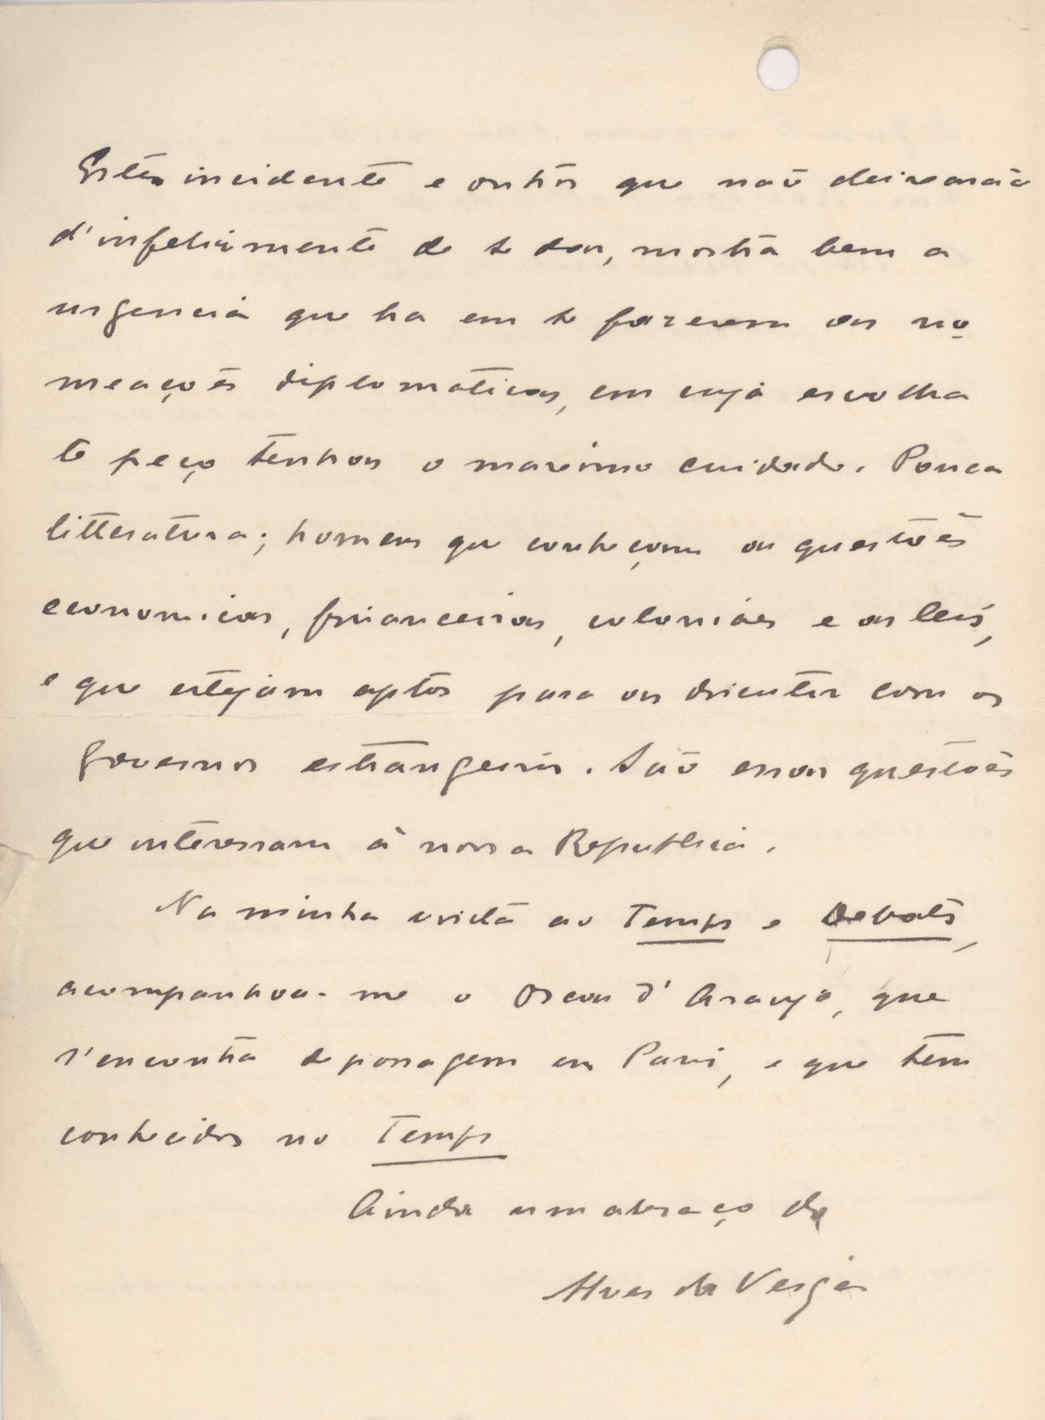 Este incidente e outros que não deixarão
d'infelizmente de se dar, mostra bem a
urgencia que ha em se fazerem as no
meações diplomaticas, em cuja escolha
te peço tenhas o maximo cuidado. Pouca
litteratura; homens que conheçam as questões
economicas, financeiras, coloniaes e as leis,
e que estejam aptos para as discutir com os
governos estrangeiros. São essas questões
que interessam á nossa Republica.
Na minha visita ao Temps e Debats,
acompanhou-me o Oscar d'Araujo, que
s'encontra de passagem em Paris, e que tem
conhecidos no Temps
Ainda um abraço do
Alves da Veiga